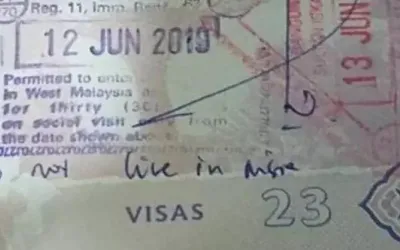 Reg. 11, Imm.
12 JUN 2019
13 JUN
Permitted to enter
in West Malaysia
for thirty (30
on social visit from
the date shown above
not live in
VISAS 23